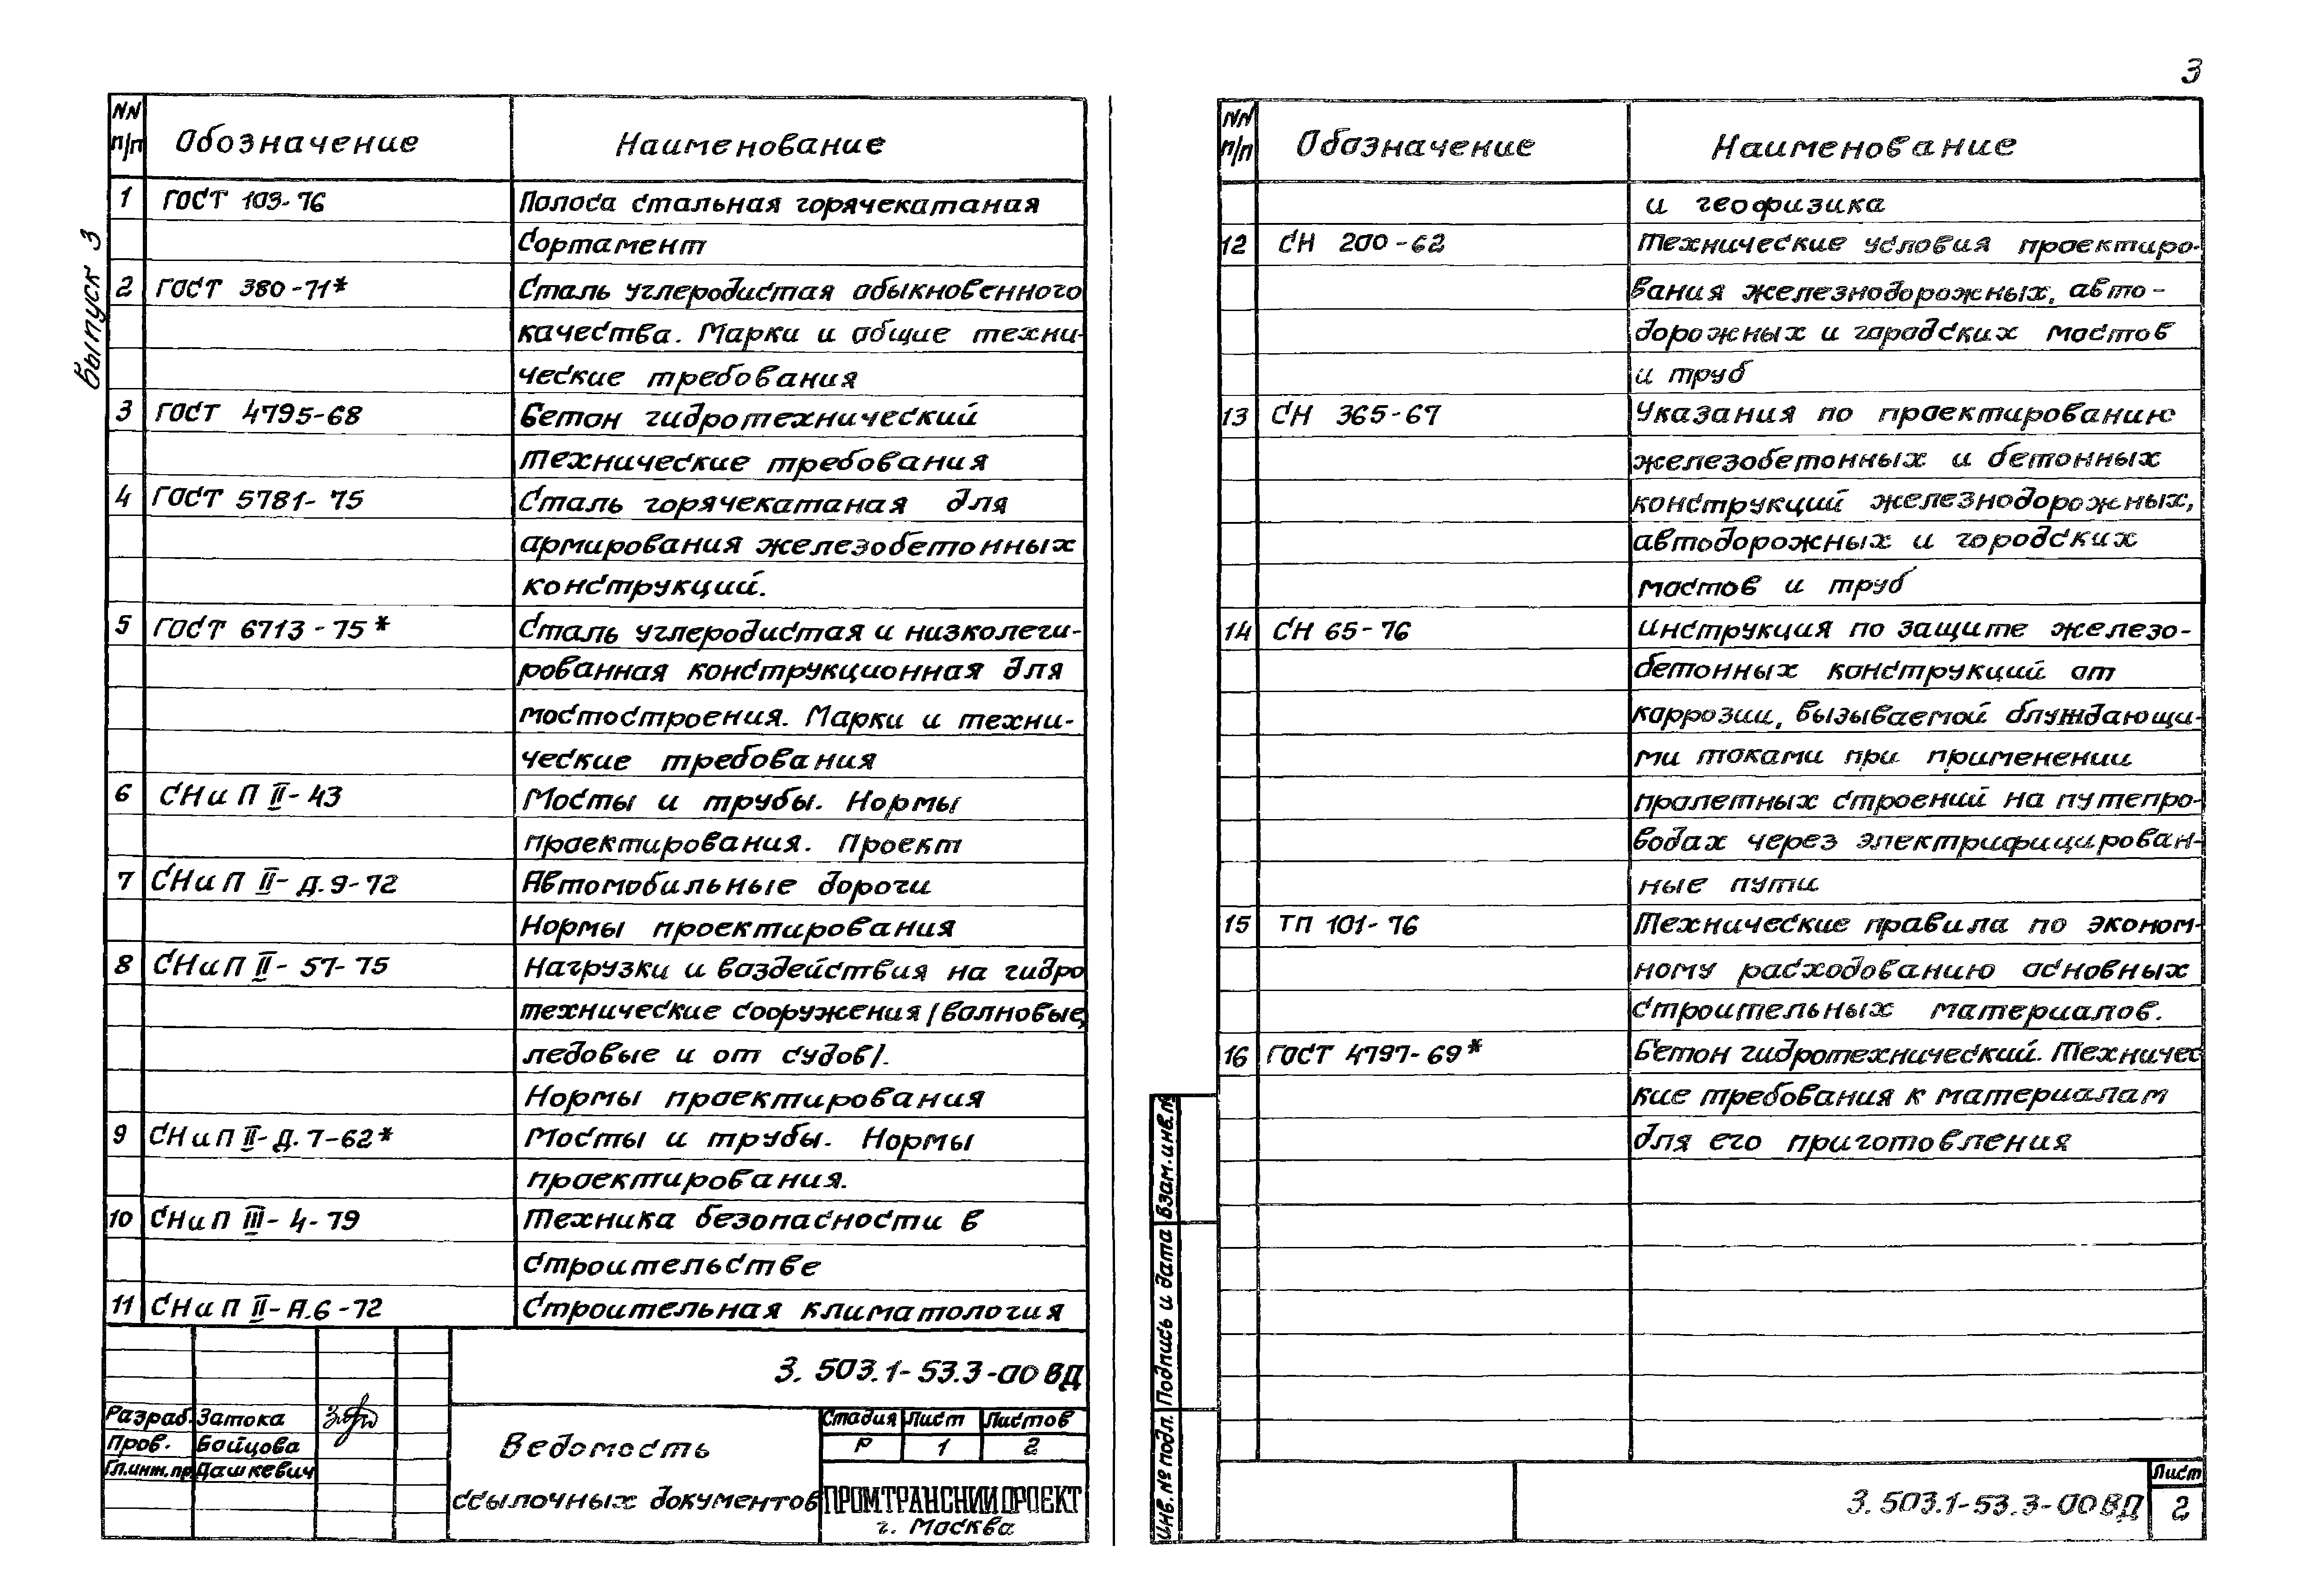 3
Выпуск 3
NN п/п Обозначение Наименование
1 ГОСТ 103-76 Полоса стальная горячекатаная
Сортамент
2 ГОСТ 380-71* Сталь углеродистая обыкновенного
качества. Марки и общие техни-
ческие требования
3 ГОСТ 4795-68 Бетон гидротехнический
Технические требования
4 ГОСТ 5781-75 Сталь горячекатаная для
армирования железобетонных
конструкций.
5 ГОСТ 6713-75* Сталь углеродистая и низколеги-
рованная конструкционная для
мостостроения. Марки и техни-
ческие требования
6 СНиП II-43 Мосты и трубы. Нормы
проектирования. Проект
7 СНиП II-Д.9-72 Автомобильные дороги
Нормы проектирования
8 СНиП II-57-75 Нагрузки и воздействия на гидро
технические сооружения /волновые,
ледовые и от судов/.
Нормы проектирования
9 СНиП II-Д.7-62* Мосты и трубы. Нормы
проектирования.
10 СНиП III-4-79 Техника безопасности в
строительстве
11 СНиП II-А.6-72 Строительная климатология
3.503.1-53.3-00ВД
Разраб. Затока
Пров. Бойцова
Гл.инж.пр. Дашкевич
Ведомость
ссылочных документов
Стадия Лист Листов
Р 1 2
ПРОМТРАНСНИИПРОЕКТ
г. Москва
NN п/п Обозначение Наименование
и геофизика
12 СН 200-62 Технические условия проектиро-
вания железнодорожных, авто-
дорожных и городских мостов
и труб
13 СН 365-67 Указания по проектированию
железобетонных и бетонных
конструкций железнодорожных,
автодорожных и городских
мостов и труб
14 СН 65-76 Инструкция по защите железо-
бетонных конструкций от
коррозии, вызываемой блуждающи-
ми токами при применении
пролетных строений на путепро-
водах через электрифицирован-
ные пути
15 ТП 101-76 Технические правила по эконом-
ному расходованию основных
строительных материалов.
16 ГОСТ 4797-69* Бетон гидротехнический. Техничес
кие требования к материалам
для его приготовления
Инв. № подл. Подпись и дата Взам.инв.№
3.503.1-53.3-00ВД
Лист
2